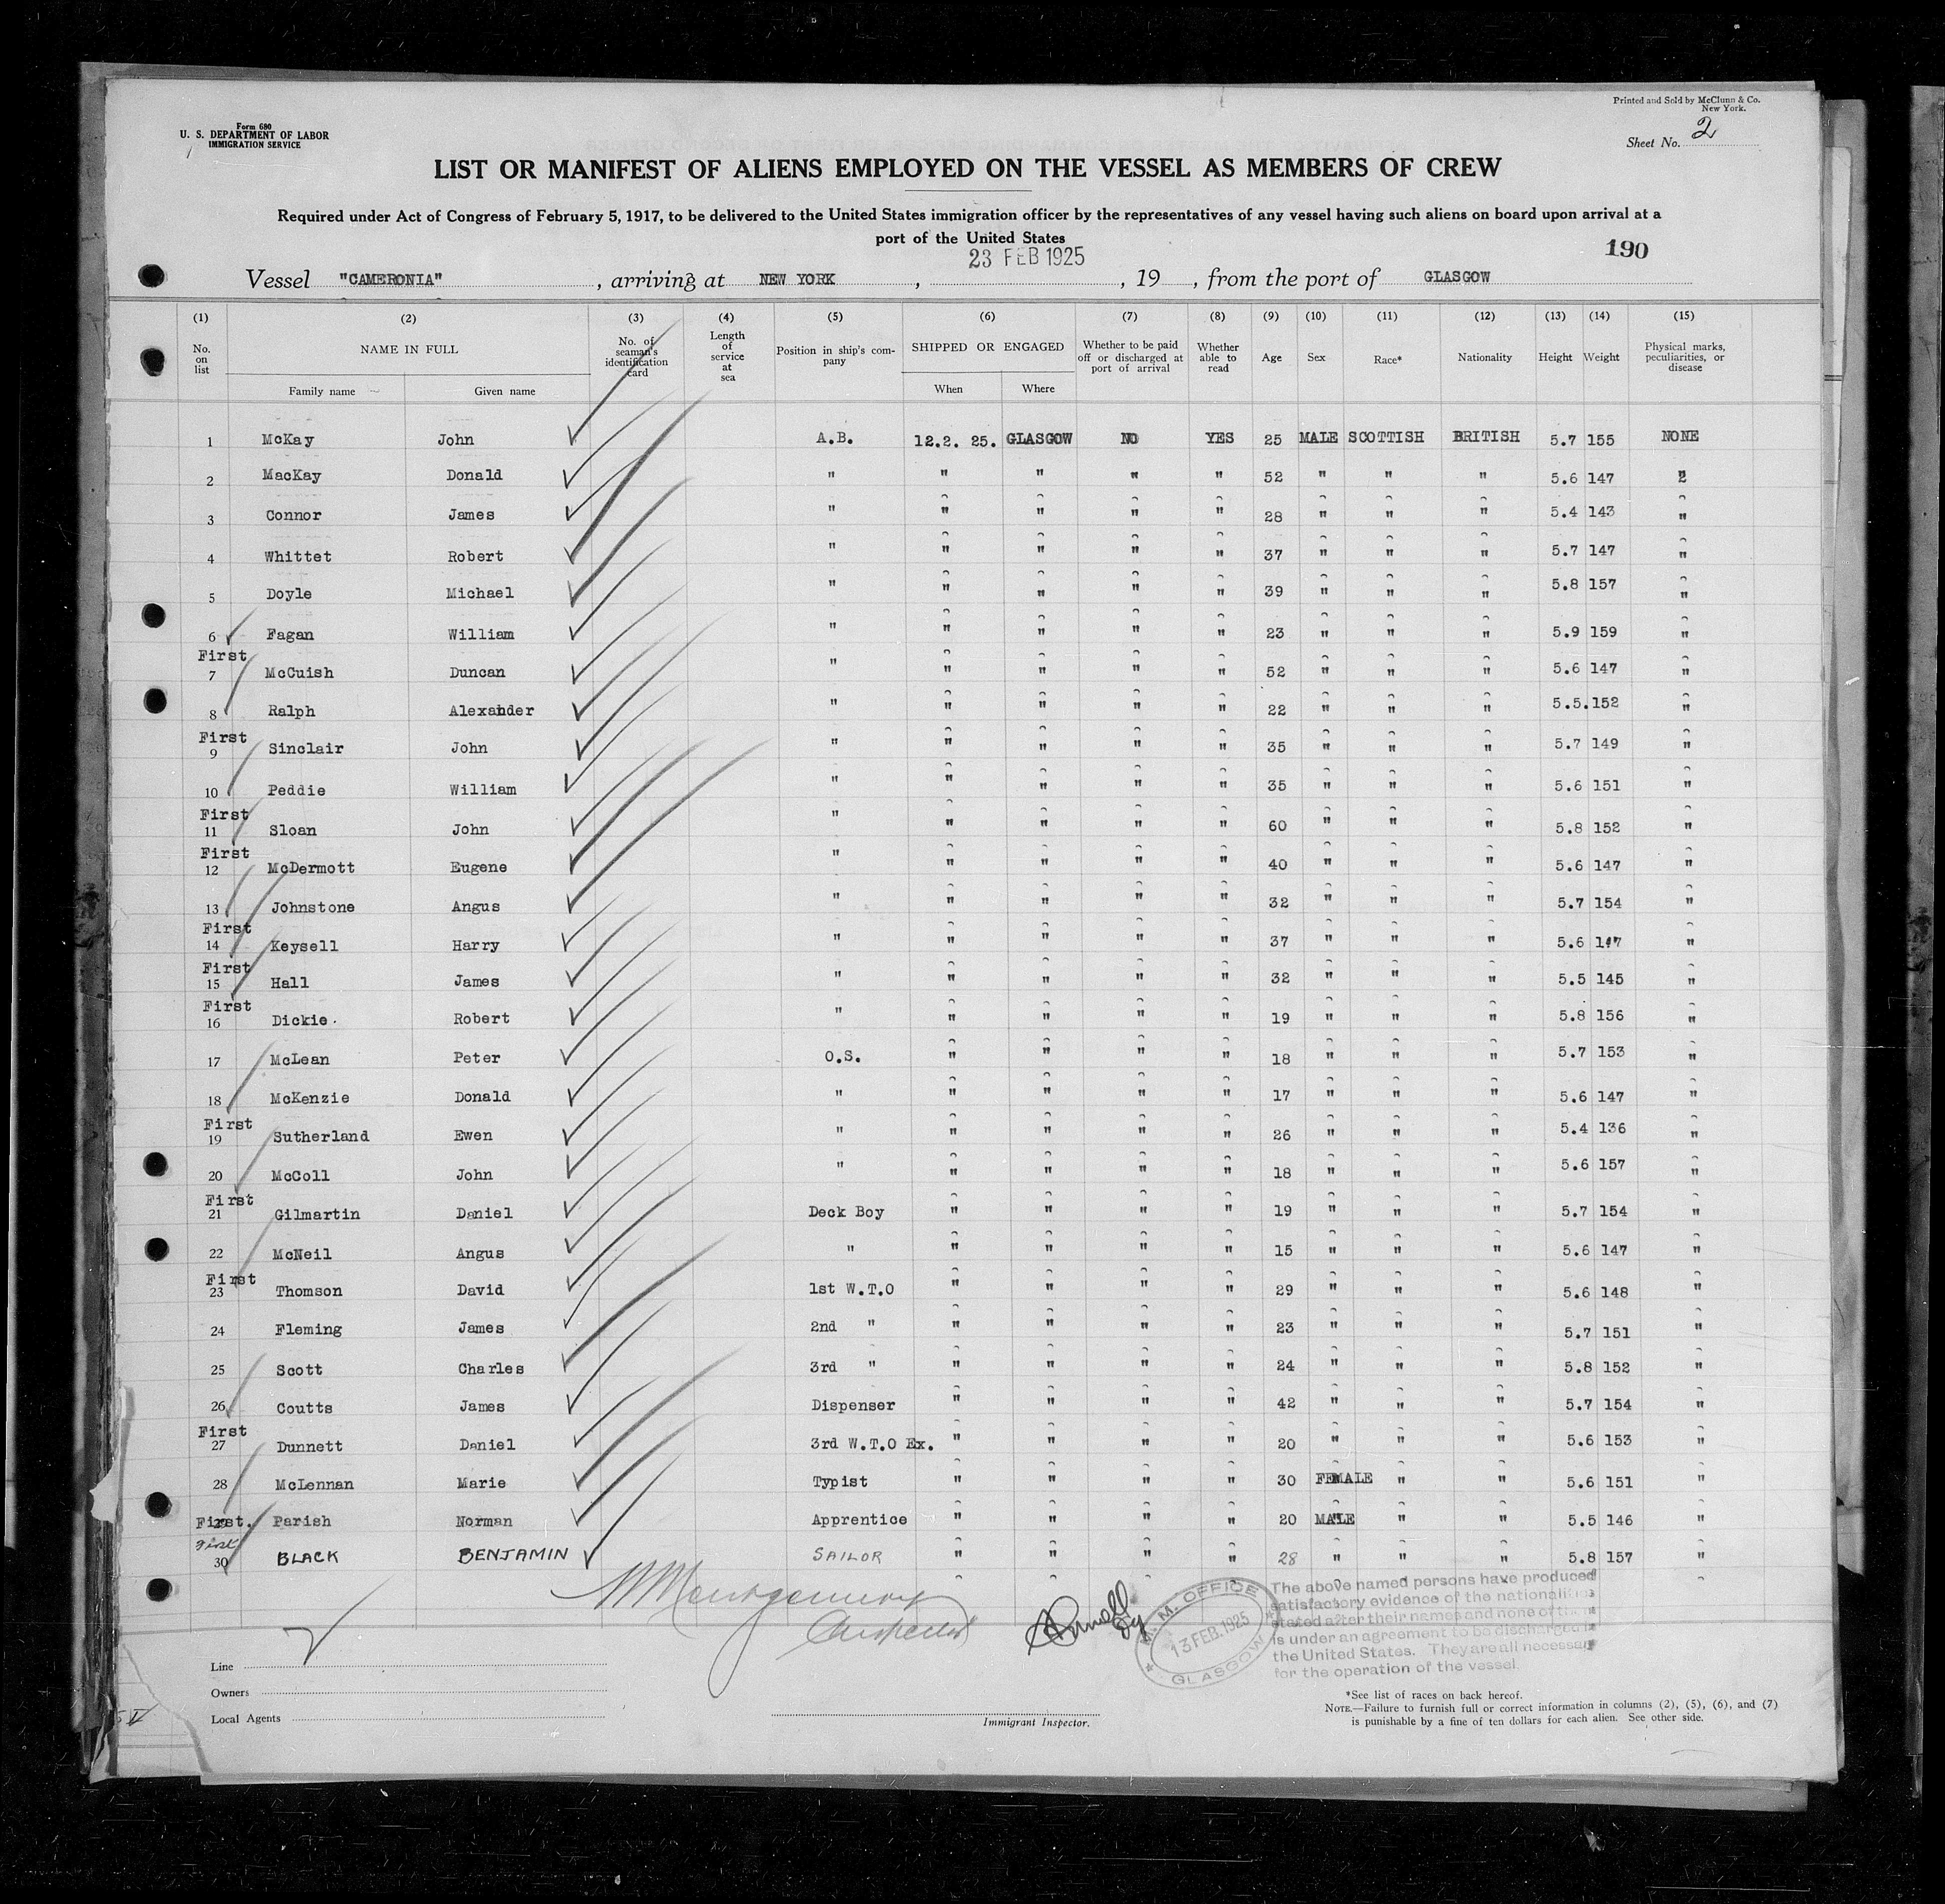 Printed and Sold by McClunn & Co.
New York.
Form 680
U. S. DEPARTMENT OF LABOR
IMMIGRATION SERVICE
Sheet No. 2
LIST OR MANIFEST OF ALIENS EMPLOYED ON THE VESSEL AS MEMBERS OF CREW
Required under Act of Congress of February 5, 1917, to be delivered to the United States immigration officer by the representatives of any vessel having such aliens on board upon arrival at a
port of the United States
190
23 FEB 1925
Vessel "CAMERONIA" , arriving at NEW YORK , , 19 , from the port of GLASGOW
(1) (2) (3) (4) (5) (6) (7) (8) (9) (10) (11) (12) (13) (14) (15)
No. on list NAME IN FULL Family name Given name No. of seaman's identification card Length of service at sea Position in ship's company SHIPPED OR ENGAGED When Where Whether to be paid off or discharged at port of arrival Whether able to read Age Sex Race* Nationality Height Weight Physical marks, peculiarities, or disease
1 McKay John A.B. 12.2. 25. GLASGOW NO YES 25 MALE SCOTTISH BRITISH 5.7 155 NONE
2 MacKay Donald " " " " " 52 " " " 5.6 147 "
3 Connor James " " " " " 28 " " " 5.4 143 "
4 Whittet Robert " " " " " 37 " " " 5.7 147 "
5 Doyle Michael " " " " " 39 " " " 5.8 157 "
6 Fagan William " " " " " 23 " " " 5.9 159 "
First
7 McCuish Duncan " " " " " 52 " " " 5.6 147 "
8 Ralph Alexander " " " " " 22 " " " 5.5. 152 "
First
9 Sinclair John " " " " " 35 " " " 5.7 149 "
10 Peddie William " " " " " 35 " " " 5.6 151 "
First
11 Sloan John " " " " " 60 " " " 5.8 152 "
First
12 McDermott Eugene " " " " " 40 " " " 5.6 147 "
13 Johnstone Angus " " " " " 32 " " " 5.7 154 "
First
14 Keysell Harry " " " " " 37 " " " 5.6 147 "
First
15 Hall James " " " " " 32 " " " 5.5 145 "
First
16 Dickie. Robert " " " " " 19 " " " 5.8 156 "
17 McLean Peter O.S. " " " " 18 " " " 5.7 153 "
18 McKenzie Donald " " " " " 17 " " " 5.6 147 "
First
19 Sutherland Ewen " " " " " 26 " " " 5.4 136 "
20 McColl John " " " " " 18 " " " 5.6 157 "
First
21 Gilmartin Daniel Deck Boy " " " " 19 " " " 5.7 154 "
22 McNeil Angus " " " " " 15 " " " 5.6 147 "
First
23 Thomson David 1st W.T.O " " " " 29 " " " 5.6 148 "
24 Fleming James 2nd " " " " " 23 " " " 5.7 151 "
25 Scott Charles 3rd " " " " " 24 " " " 5.8 152 "
26 Coutts James Dispenser " " " " 42 " " " 5.7 154 "
First
27 Dunnett Daniel 3rd W.T.O Ex. " " " " 20 " " " 5.6 153 "
28 McLennan Marie Typist " " " " 30 FEMALE " " 5.6 151 "
First. Parish Norman Apprentice " " " " 20 MALE " " 5.5 146 "
First
30 BLACK BENJAMIN SAILOR " " " " 28 " " " 5.8 157 "
M. M. OFFICE
13 FEB. 1925
GLASGOW
The above named persons have produced
satisfactory evidence of the nationalities
stated after their names and none of
is under an agreement to be discharged
the United States. They are all necessary
for the operation of the vessel.
Line
Owners
Local Agents
Immigrant Inspector.
*See list of races on back hereof.
NOTE.—Failure to furnish full or correct information in columns (2), (5), (6), and (7)
is punishable by a fine of ten dollars for each alien. See other side.